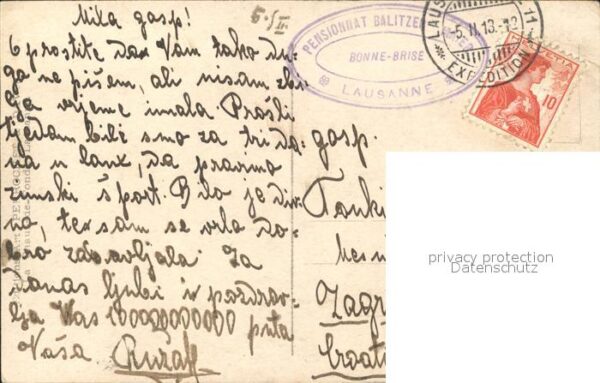 Mila gosp!
Oprostite da Vam tako du-
go ne pišem, ali nisam zbi-
lja vrjeme imala. Prošli
tjedan bile smo za tri da-
na u da pravimo
zimski šport. Bilo je div-
no, ter sam se vrlo do-
bro zabavljala. Za
danas ljubi i pozdrav-
lja Vas 100000000000 puta
Vaša Ruža
5./II.
PENSIONNAT BALITZE
BONNE-BRISE
LAUSANNE
LAUS
5.II.13-12
EXPEDITION
HELVETIA
10
gosp.
Zagr
Croat
privacy protection
Datenschutz